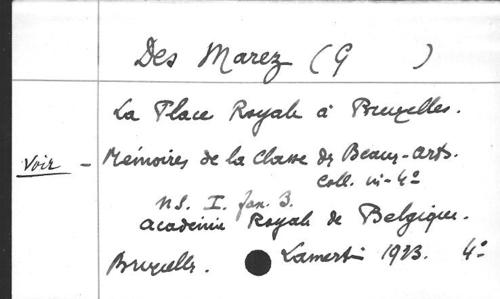 Des Marez (G )
La Place Royale à Bruxelles.
Voir - Mémoires de la Classe des Beaux-Arts.
Coll. in-4º
NS. I. fasc. 3.
Académie Royale de Belgique.
Bruxelles. Lamertin 1923. 4º